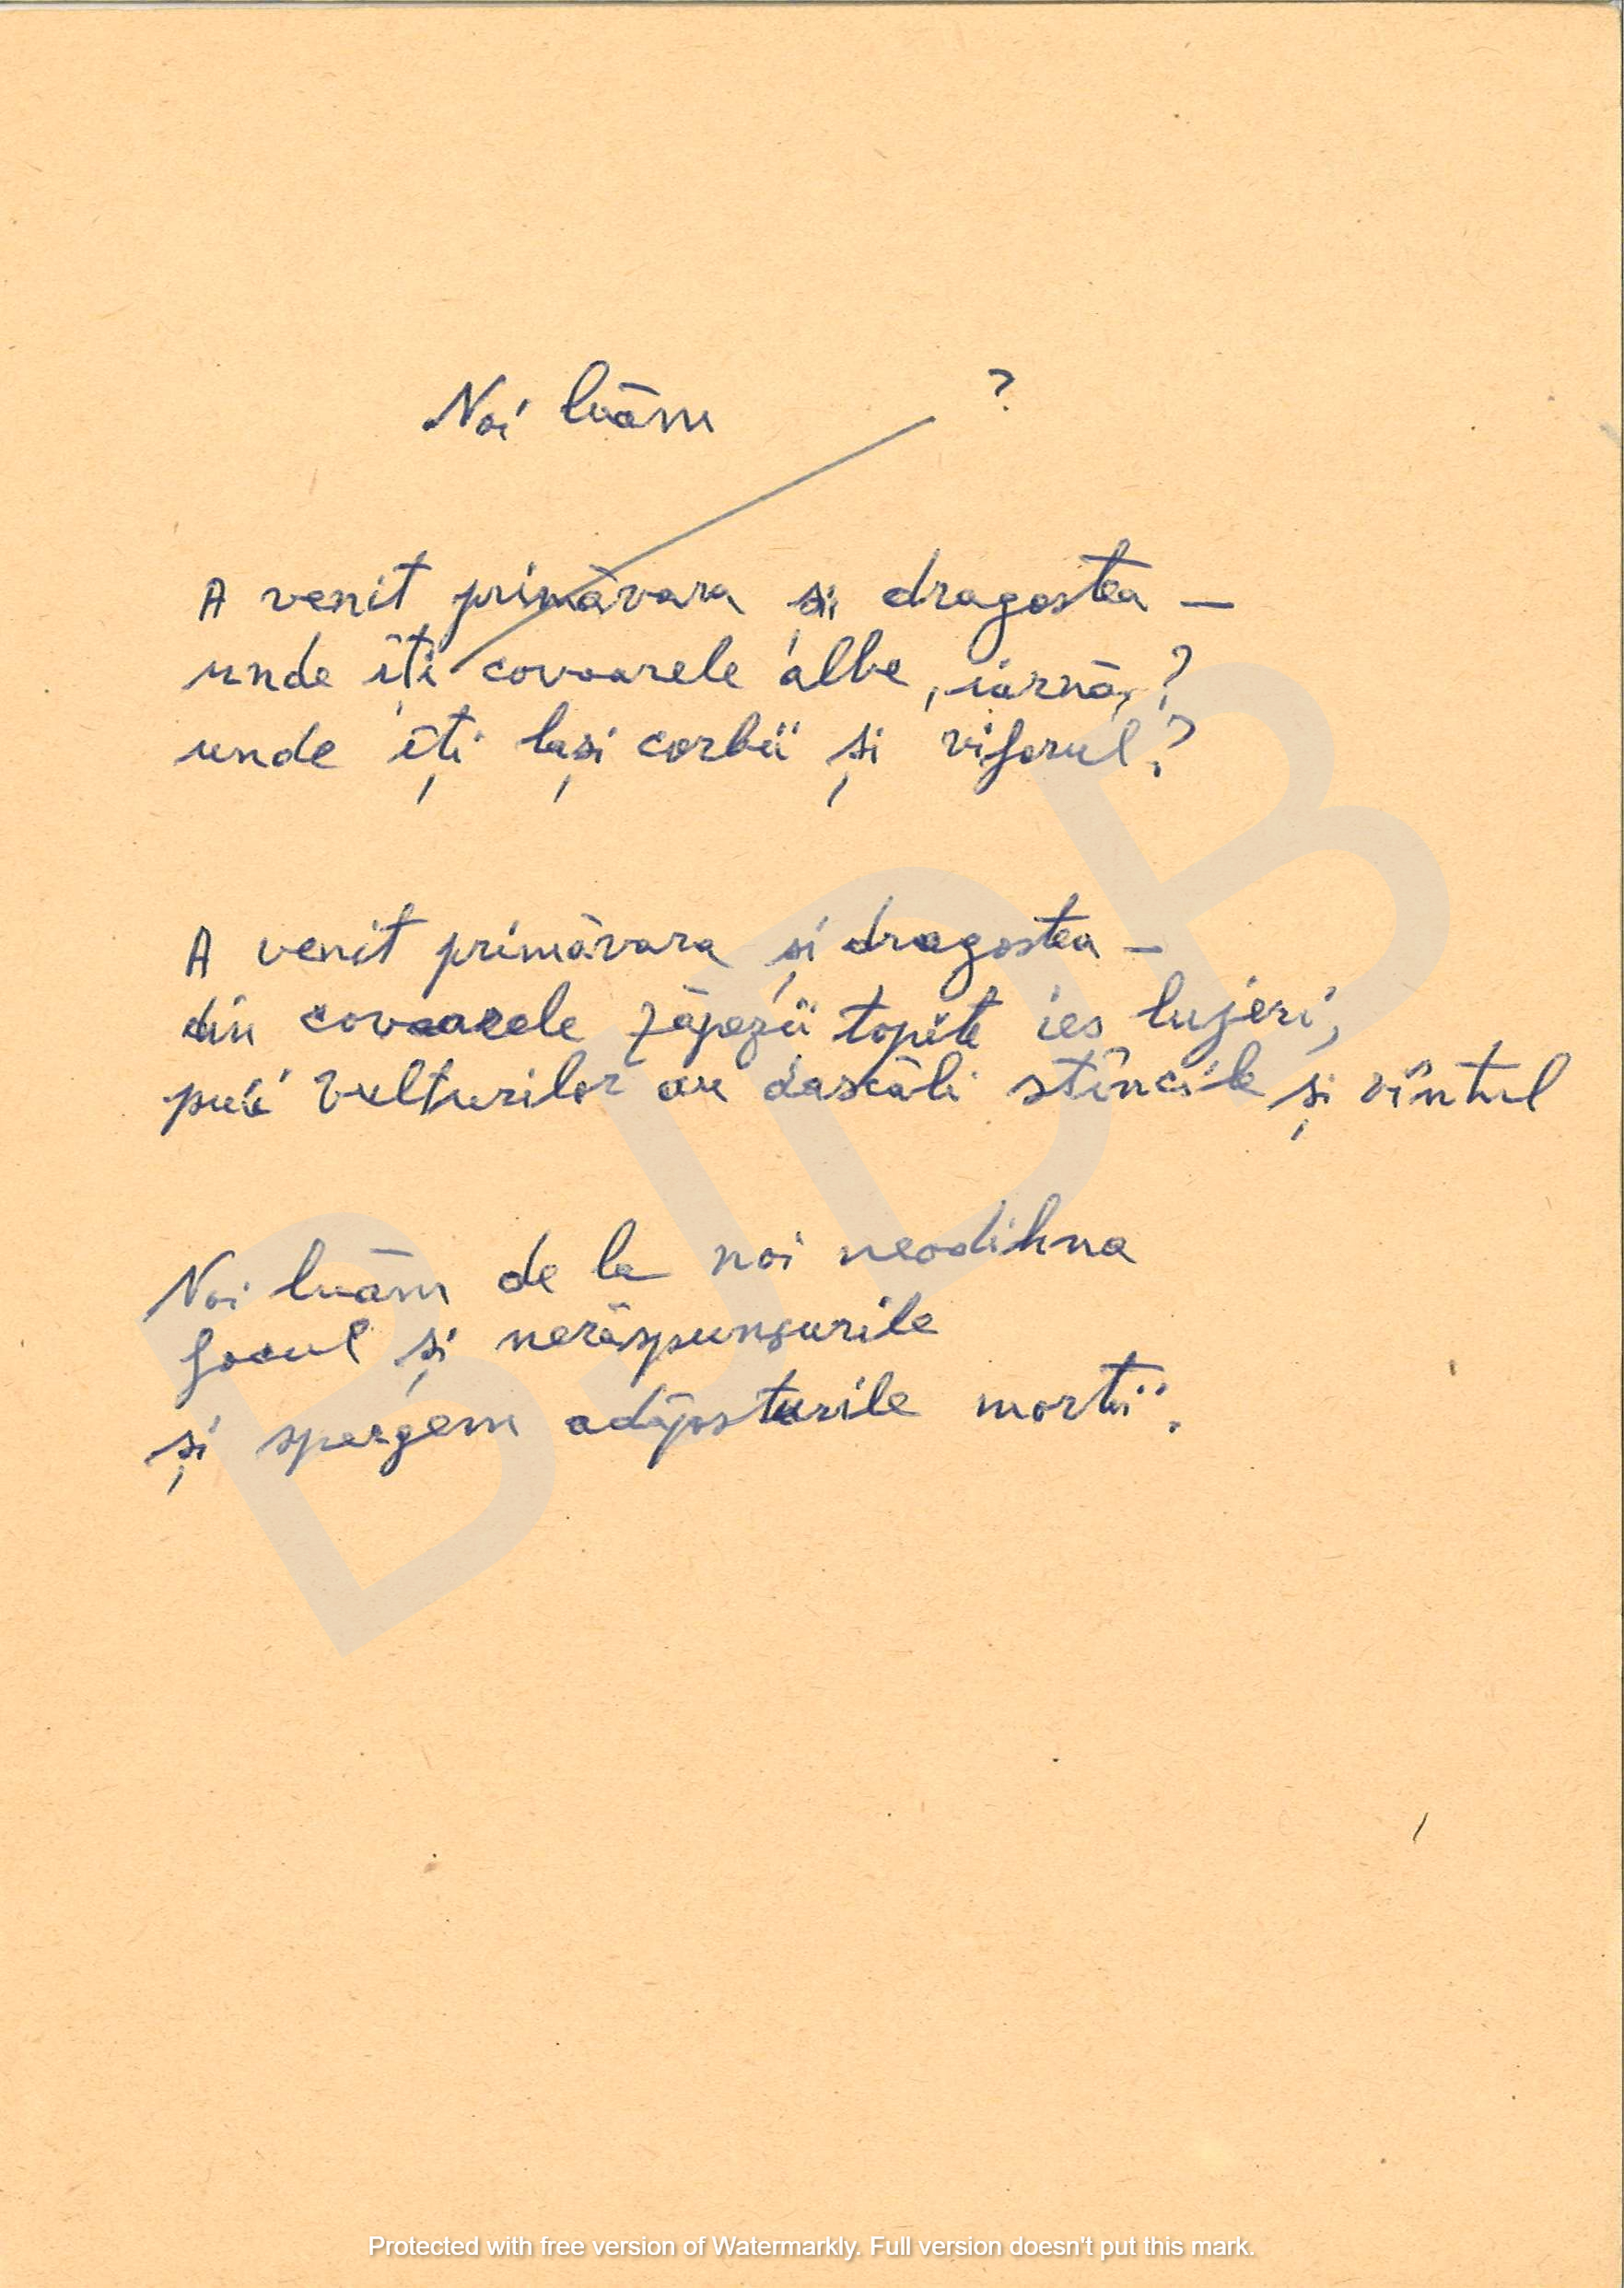 Noi luăm ?
A venit primăvara și dragostea —
unde îți covoarele albe, iarnă,?
unde îți lași corbii și viforul?
A venit primăvara și dragostea —
din covoarele zăpezii topite ies lujeri,
puii vulturilor au dascăli stîncile și vîntul
Noi luăm de la noi neodihna
focul și nerăspunsurile
și spargem adăposturile morții.
BJDB
Protected with free version of Watermarkly. Full version doesn't put this mark.